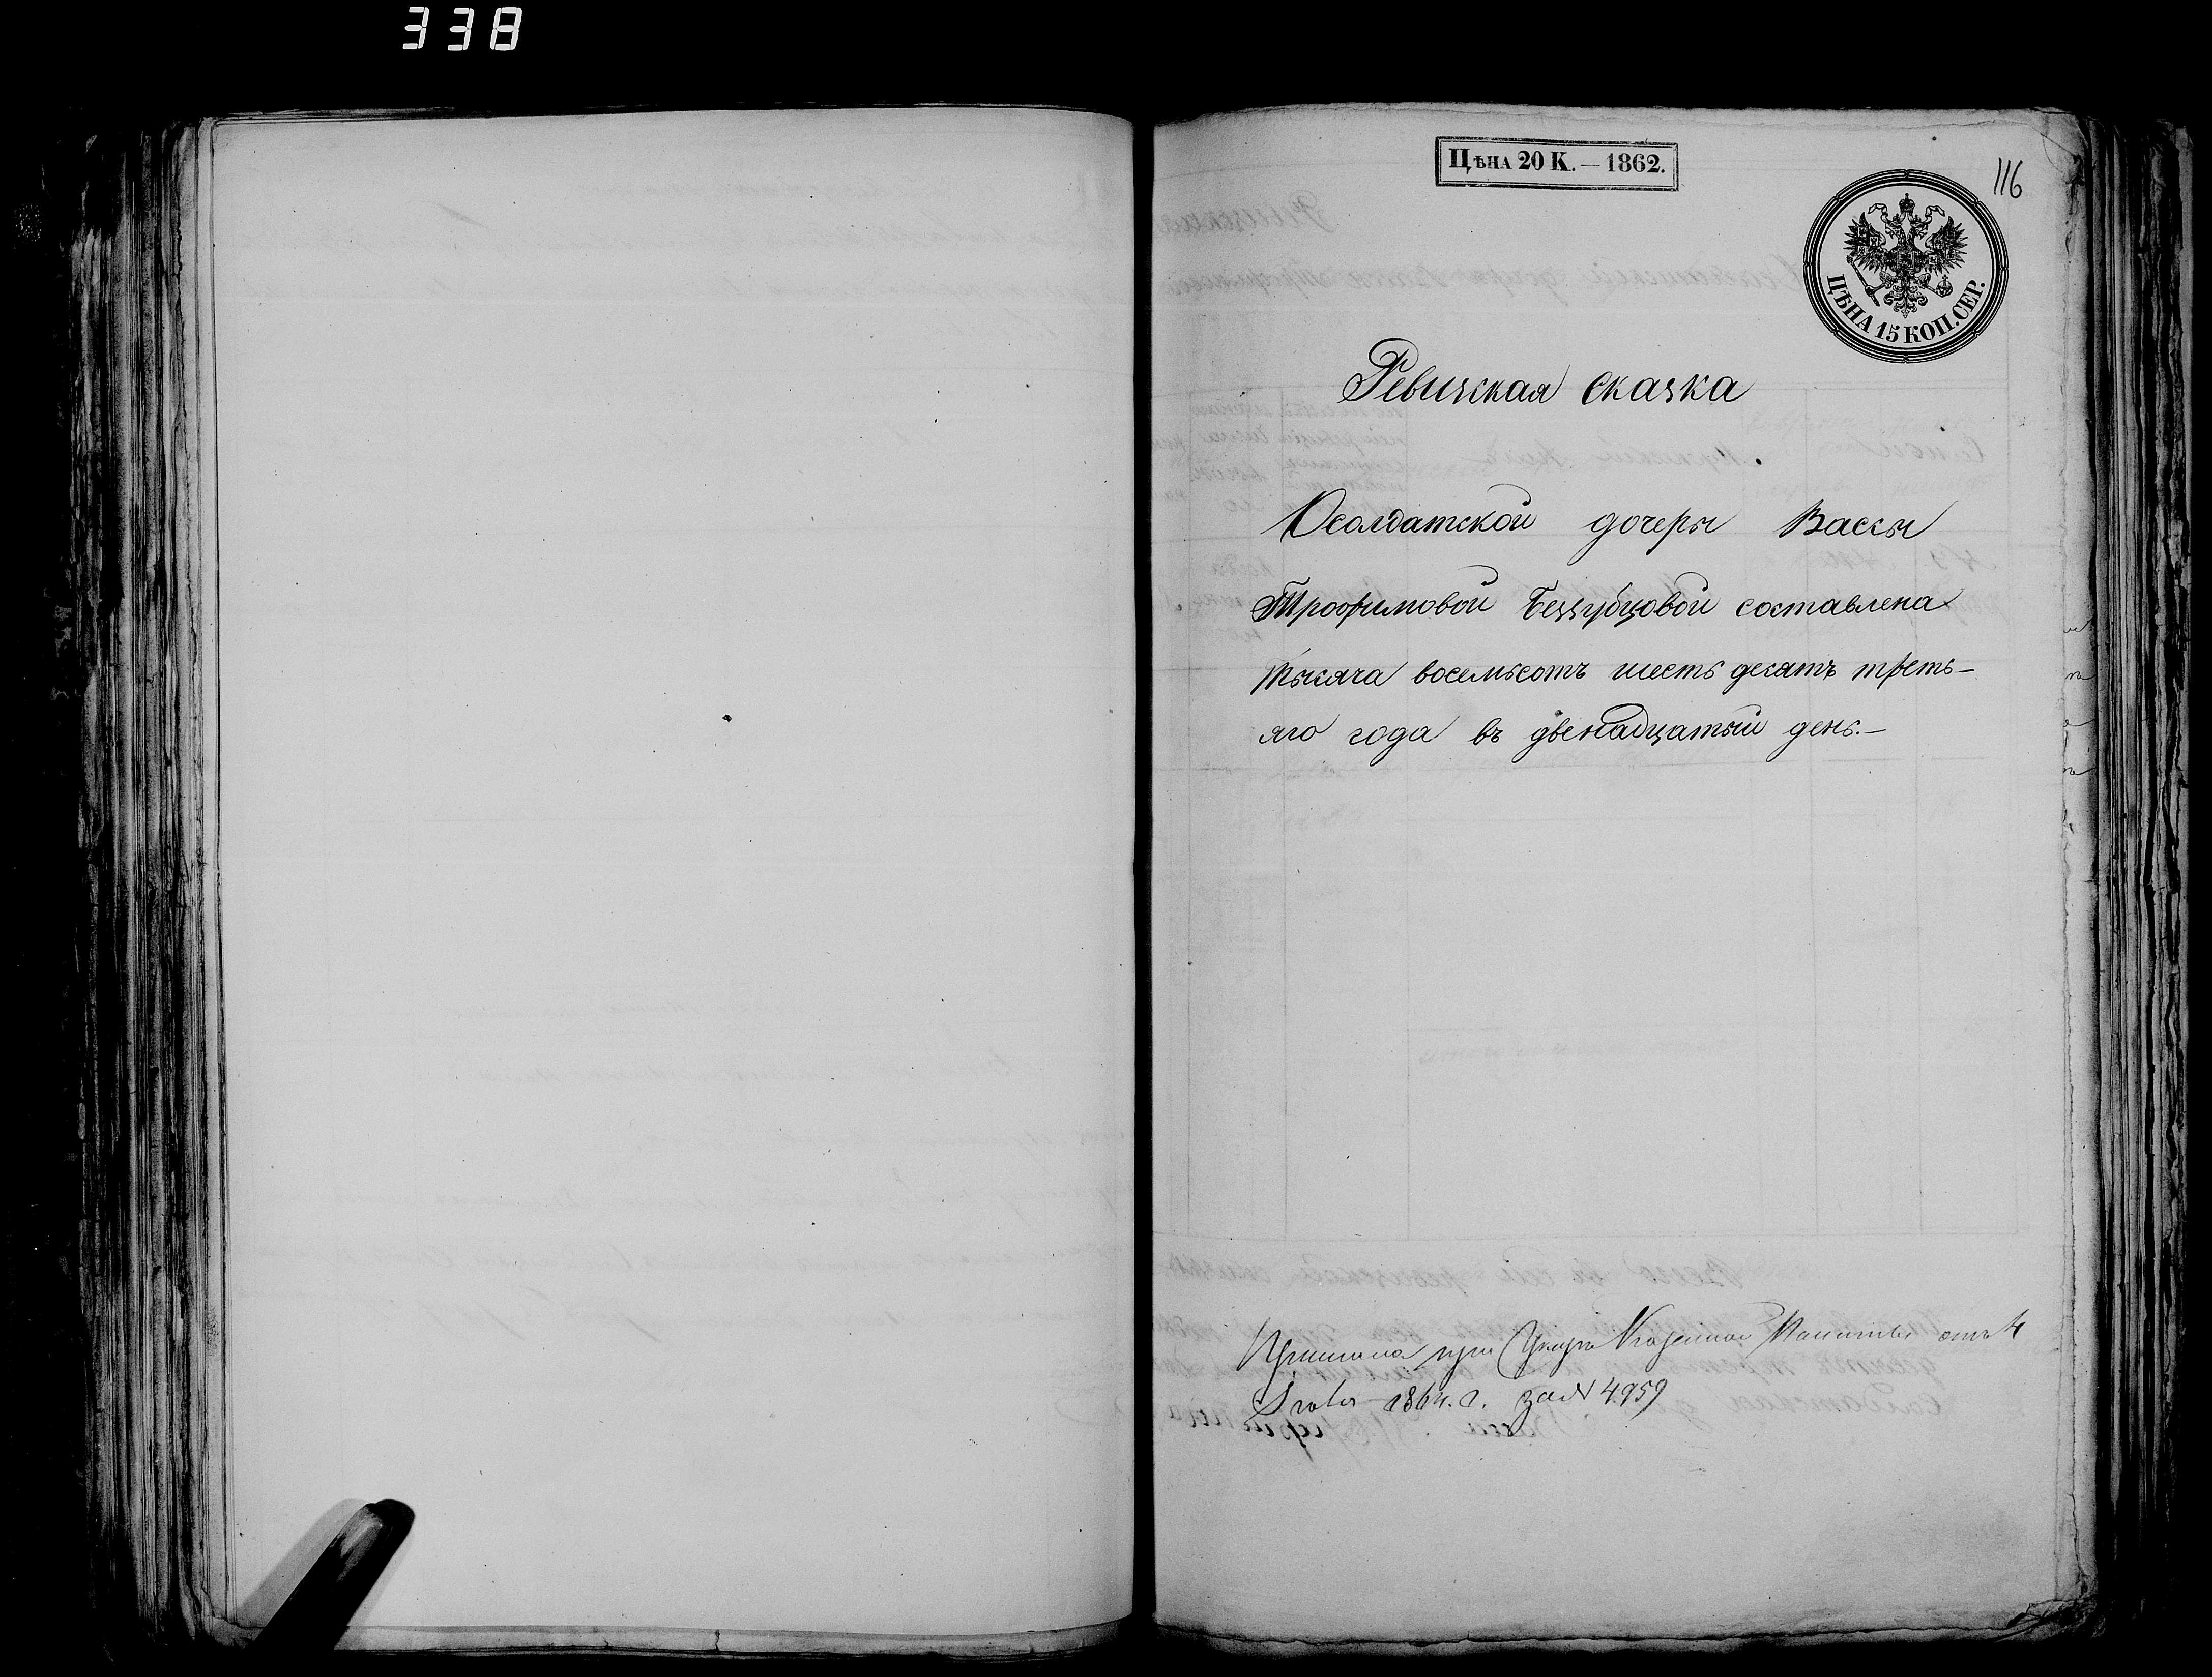 338
ЦѢНА 20 К. — 1862.
116
ЦѢНА 15 КОП. СЕР.
Ревизская сказка
О солдатской дочери Вассы
Трофимовой Беззубцовой составлена
тысяча восемьсотъ шесть десятъ треть-
яго года въ двенадцатый день.—
при Указѣ Казенной Палаты отъ 4
1864. г. за № 4959